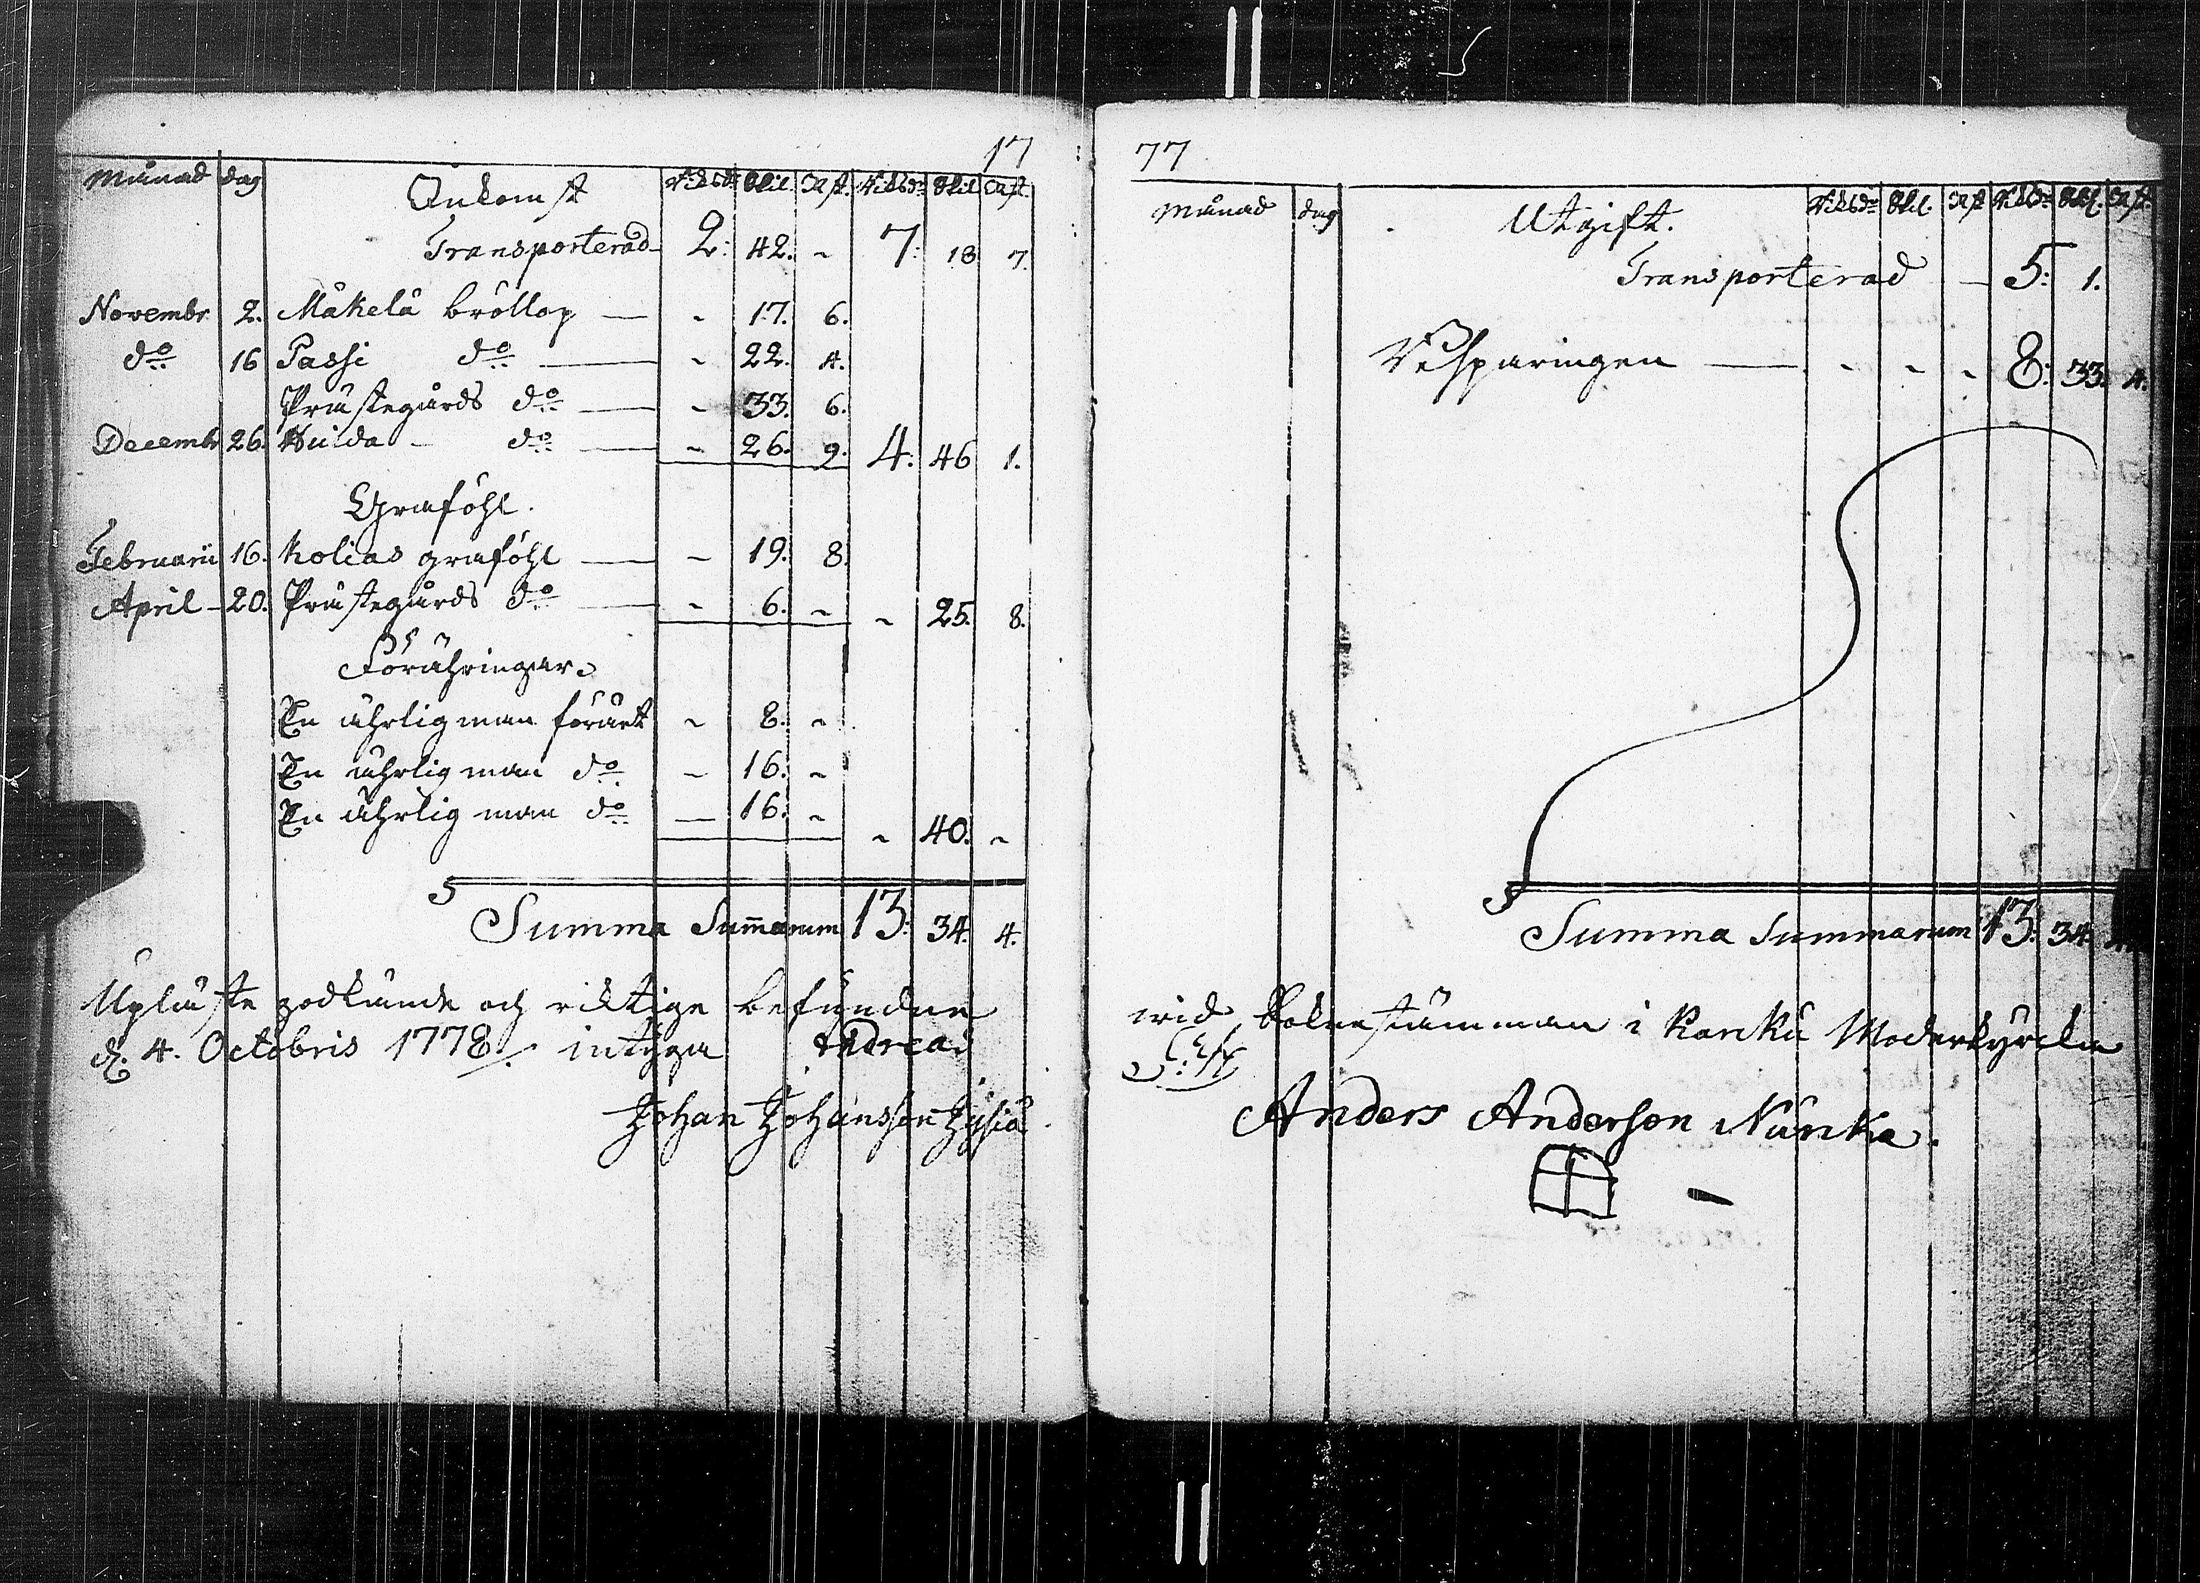 17
Månad dag Inkomst Riksdr Skil. rst. Riksdr Skil rst.
Transporterad 2: 42. ~ 7: 18 7.
Novembr 2. Mäkelä bröllop — ~ 17. 6.
do 16 Passi do — ~ 22. 4.
Prästegårds do — ~ 33. 6.
Decembr 26. Huida — do — ~ 26. 9. 4: 46 1.
Graföhl.
Februarii 16. Kolias graföhl — – 19. 8.
April – 20. Prästegårds do — ~ 6. ~ ~ 25. 8.
Förähringar.
En ährlig man förärt ~ 8. ~
En ährlig man do – 16. ~
En ährlig man do — 16. ~ ~ 40. ~
Summa Sum̅arum 13: 34. 4.
Upläste godkände och riktige befundne
d. 4. Octobris 1778. intyga
Johan Johansson
77
Månad dag Utgift. Riksdr Skil. rst Riksdr Skil. rst.
Transporterad — 5: 1.
Besparingen — ~ ~ ~ 8: 33. 4.
Summa Summarum 13: 34.
wid Sokne stämman i Karku Moderkyrcka
Anders Anderson